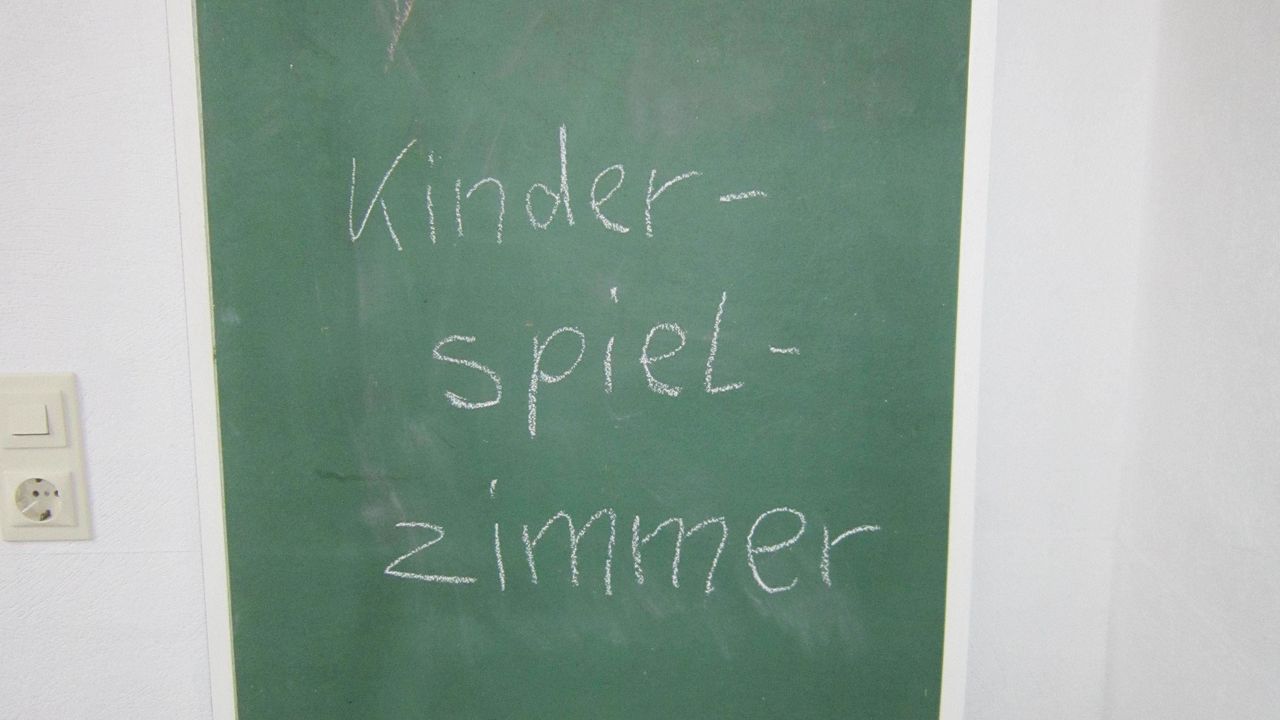 Kinder-
spiel-
zimmer